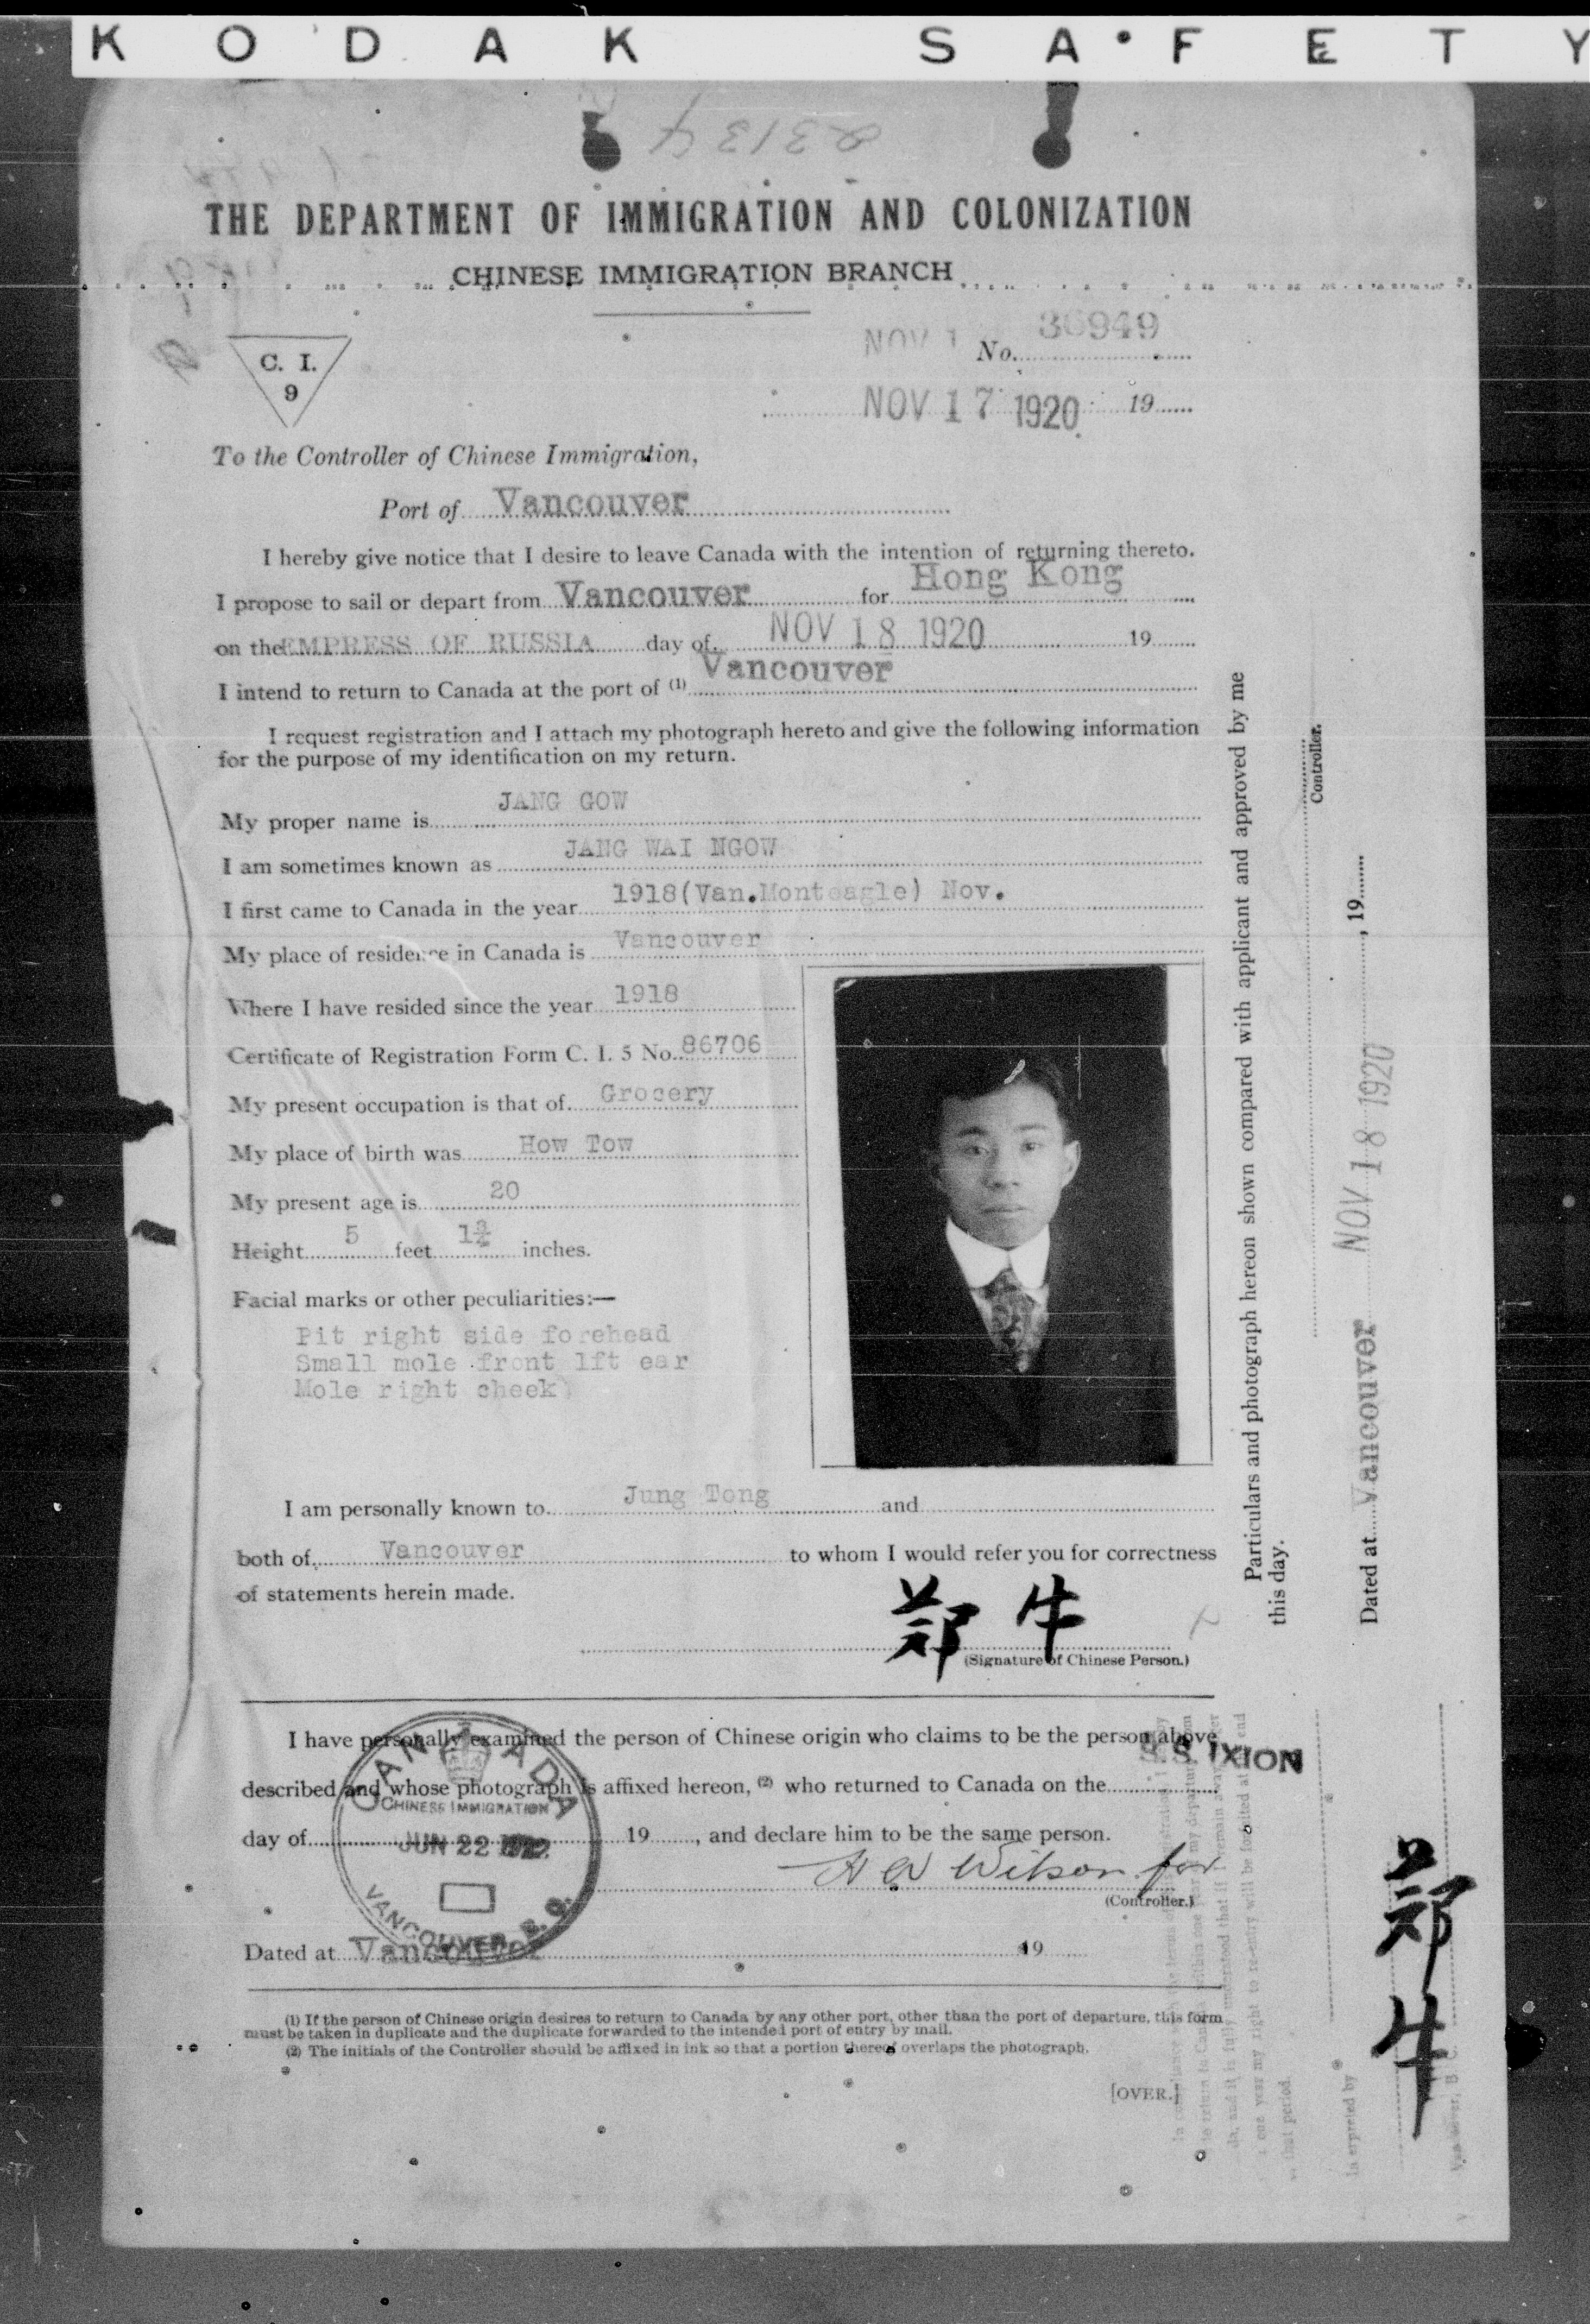 KODAK SAFETY
22134
THE DEPARTMENT OF IMMIGRATION AND COLONIZATION
CHINESE IMMIGRATION BRANCH
C. I.
9
NOV 1
No. 36949
NOV 17 1920 19
To the Controller of Chinese Immigration,
Port of Vancouver
I hereby give notice that I desire to leave Canada with the intention of returning thereto.
I propose to sail or depart from Vancouver for Hong Kong
on the EMPRESS OF RUSSIA day of NOV 18 1920 19
I intend to return to Canada at the port of (1) Vancouver
I request registration and I attach my photograph hereto and give the following information
for the purpose of my identification on my return.
My proper name is JANG GOW
I am sometimes known as JANG WAI NGOW
I first came to Canada in the year 1918(Van.Monteagle) Nov.
My place of residence in Canada is Vancouver
Where I have resided since the year 1918
Certificate of Registration Form C. I. 5 No. 86706
My present occupation is that of Grocery
My place of birth was How Tow
My present age is 20
Height 5 feet 1¾ inches.
Facial marks or other peculiarities:—
Pit right side forehead
Small mole front lft ear
Mole right cheek)
I am personally known to Jung Tong and
both of Vancouver to whom I would refer you for correctness
of statements herein made.
鄭牛
(Signature of Chinese Person.)
I have personally examined the person of Chinese origin who claims to be the person above
S.S. IXION
described and whose photograph is affixed hereon, (2) who returned to Canada on the
day of 19, and declare him to be the same person.
CANADA
CHINESE IMMIGRATION
JUN 22 1922
VANCOUVER B.C.
H A Wilson for
(Controller.)
Dated at Vancouver 19
(1) If the person of Chinese origin desires to return to Canada by any other port, other than the port of departure, this form
must be taken in duplicate and the duplicate forwarded to the intended port of entry by mail.
(2) The initials of the Controller should be affixed in ink so that a portion thereof overlaps the photograph.
[OVER.]
Particulars and photograph hereon shown compared with applicant and approved by me
this day.
Controller.
Dated at Vancouver NOV 18 1920, 19
鄭牛